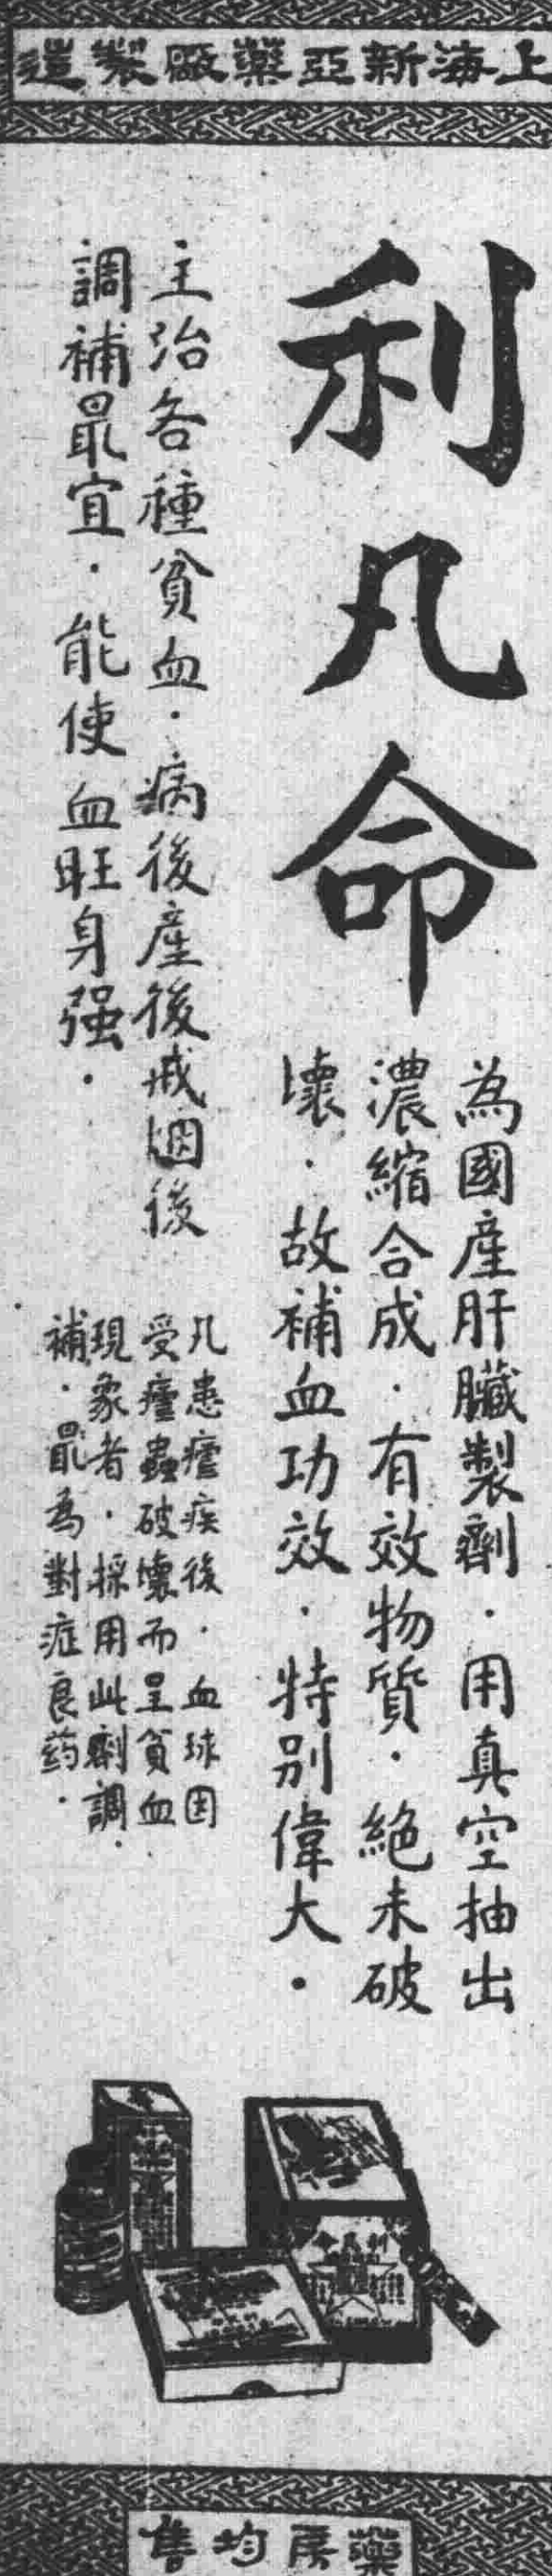 上海新亞藥厰製造
利凡命
為國產肝臟製劑．用真空抽出
濃縮合成．有效物質．絕未破
壞．故補血功效．特別偉大．
主治各種貧血．病後產後戒烟後
調補最宜．能使血旺身强．
凡患瘧疾後．血球因
受瘧蟲破壞而呈貧血
現象者．採用此劑調
補．最為對症良药．
藥房均售